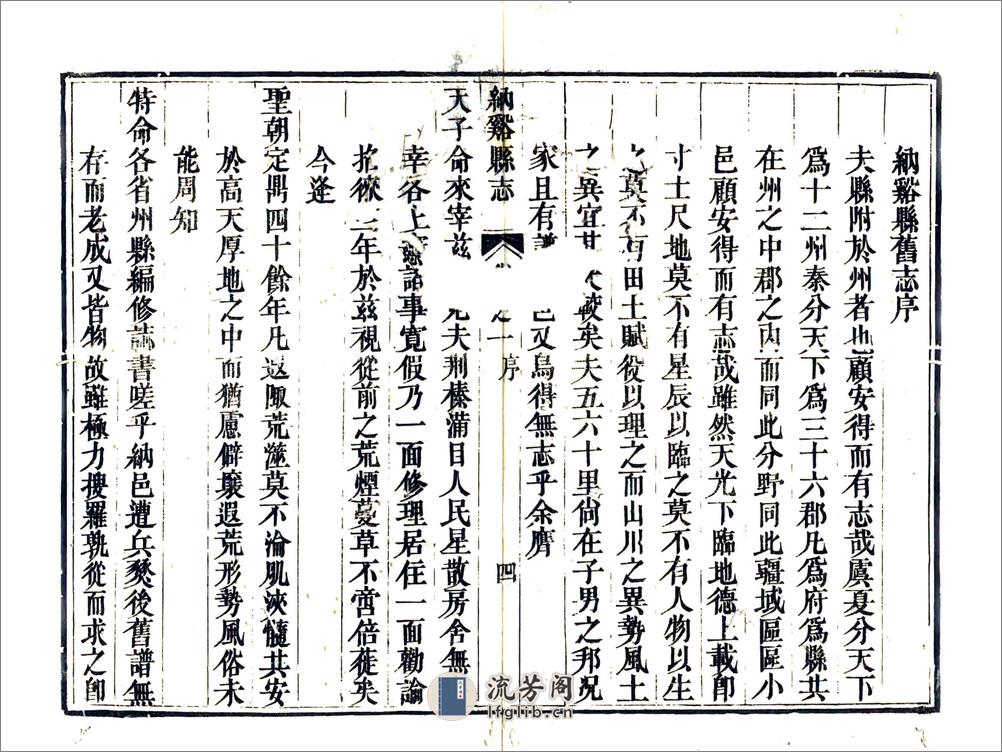 納谿縣舊志序
夫縣附於州者也顧安得而有志哉虞夏分天下
爲十二州秦分天下爲三十六郡凡爲府爲縣共
在州之中郡之內而同此分野同此疆域區區小
邑顧安得而有志哉雖然天光下臨地德上載即
寸土尺地莫不有星辰以臨之莫不有人物以生
之莫不有田土賦役以理之而山川之異勢風土
之異宜其 較矣夫五六十里尙在子男之邦况
家且有譜 邑又烏得無志乎余膺
納谿縣志 卷之一 序 四
天子命來宰兹 見夫荆榛滿目人民星散房舍無
幸各上 諸事寬假乃一面修理居住一面勸諭
招徠 年於兹視從前之荒煙蔓草不啻倍蓰矣
今逢
聖朝定鼎四十餘年凡遐陬荒澨莫不淪肌浹髓共安
於高天厚地之中而猶慮僻壤遐荒形勢風俗未
能周知
特命各省州縣編修誌書嗟乎納邑遭兵燹後舊譜無
存而老成又皆物故雖極力搜羅孰從而求之即
流芳阁
lfglib.cn